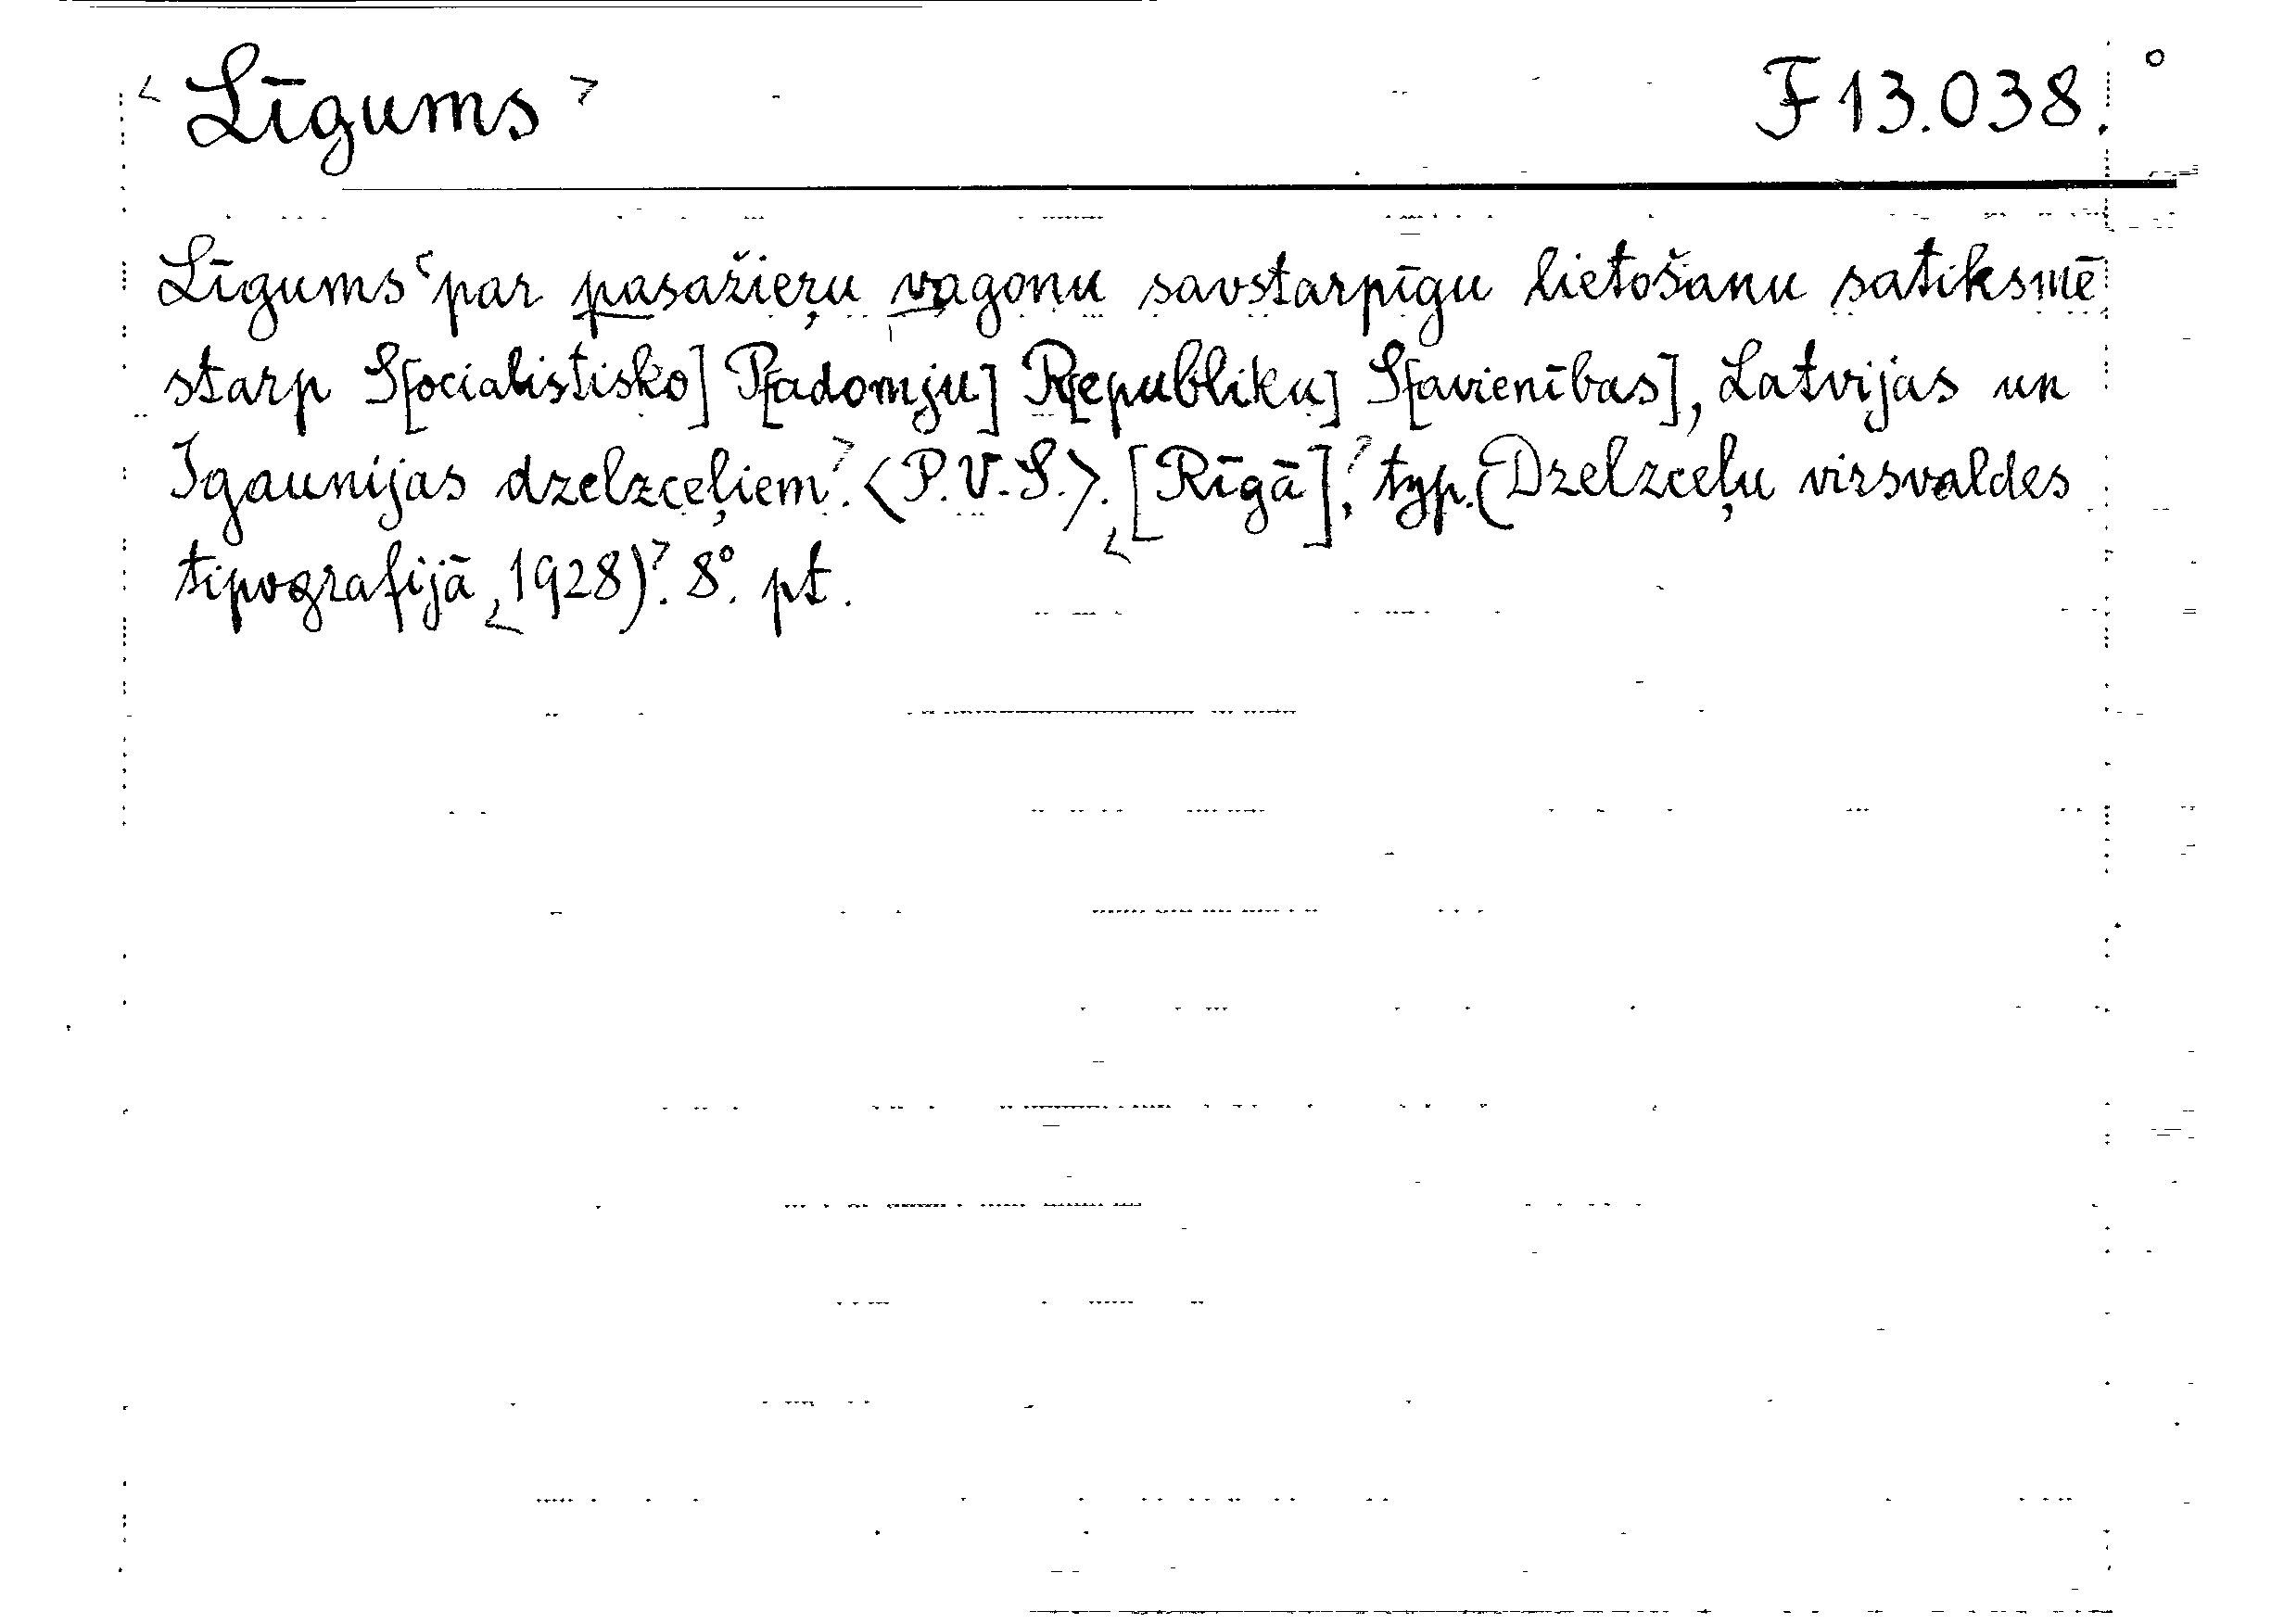 <Līgums> F 13.038.
Līgums <par pasažieŗu vagonu savstarpīgu lietošanu satiksmē
starp S[ocialistisko] P[adomju] R[epubliku] S[avienības], Latvijas un
Igaunijas dzelzceļiem>. <P.V.S.>. <[Rīgā],> typ. (Dzelzceļu virsvaldes
tipografijā, <1928)>. 8°. pt.